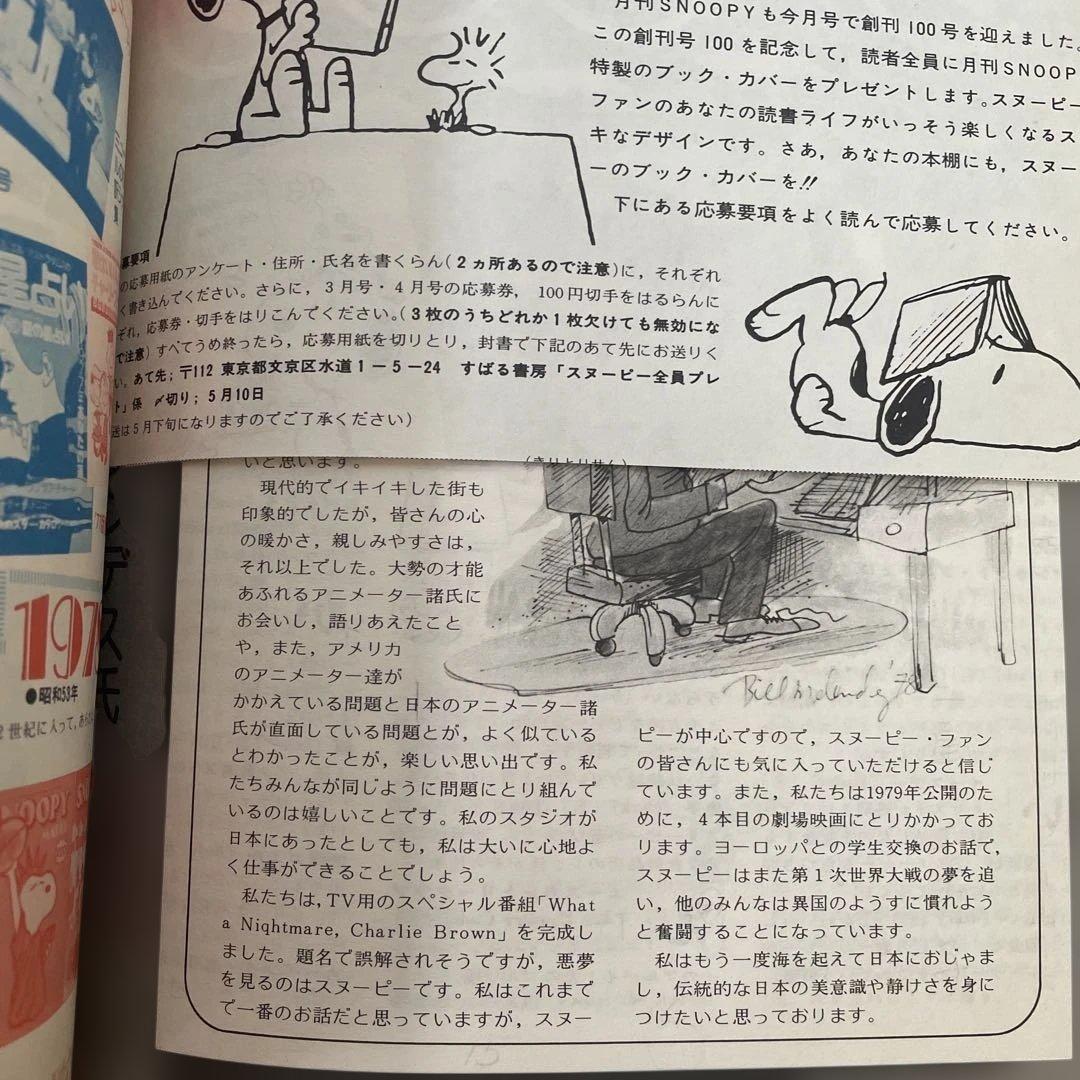 月刊SNOOPYも今月号で創刊100号を迎えました。
この創刊号100を記念して，読者全員に月刊SNOOP
特製のブック・カバーをプレゼントします。スヌーピー
ファンのあなたの読書ライフがいっそう楽しくなるス
キなデザインです。さあ，あなたの本棚にも，スヌー
ーのブック・カバーを!!
下にある応募要項をよく読んで応募してください。
募要項
の応募用紙のアンケート・住所・氏名を書くらん(2ヵ所あるので注意)に，それぞれ
く書き込んでください。さらに，3月号・4月号の応募券，100円切手をはるらんに
ぞれ，応募券・切手をはりこんでください。(3枚のうちどれか1枚欠けても無効にな
で注意)すべてうめ終ったら，応募用紙を切りとり，封書で下記のあて先にお送りく
い。あて先；〒112 東京都文京区水道1−5−24 すばる書房「スヌーピー全員プレ
ト」係 〆切り；5月10日
送は5月下旬になりますのでご了承ください)
(きりとりせん)
いと思います。
現代的でイキイキした街も
印象的でしたが，皆さんの心
の暖かさ，親しみやすさは，
それ以上でした。大勢の才能
あふれるアニメーター諸氏に
お会いし，語りあえたこと
や，また，アメリカ
のアニメーター達が
かかえている問題と日本のアニメーター諸
氏が直面している問題とが，よく似ている
とわかったことが，楽しい思い出です。私
たちみんなが同じように問題にとり組んで
いるのは嬉しいことです。私のスタジオが
日本にあったとしても，私は大いに心地よ
く仕事ができることでしょう。
私たちは，TV用のスペシャル番組「What
a Niqhtmare, Charlie Brown」を完成し
ました。題名で誤解されそうですが，悪夢
を見るのはスヌーピーです。私はこれまで
で一番のお話だと思っていますが，スヌー
ピーが中心ですので，スヌーピー・ファン
の皆さんにも気に入っていただけると信じ
ています。また，私たちは1979年公開のた
めに，4本目の劇場映画にとりかかってお
ります。ヨーロッパとの学生交換のお話で，
スヌーピーはまた第1次世界大戦の夢を追
い，他のみんなは異国のようすに慣れよう
と奮闘することになっています。
私はもう一度海を起えて日本におじゃま
し，伝統的な日本の美意識や静けさを身に
つけたいと思っております。
Bill Melendez '78
ンデス氏
号
星占い
197
●昭和53年
世紀に入って，あ
NOOPY